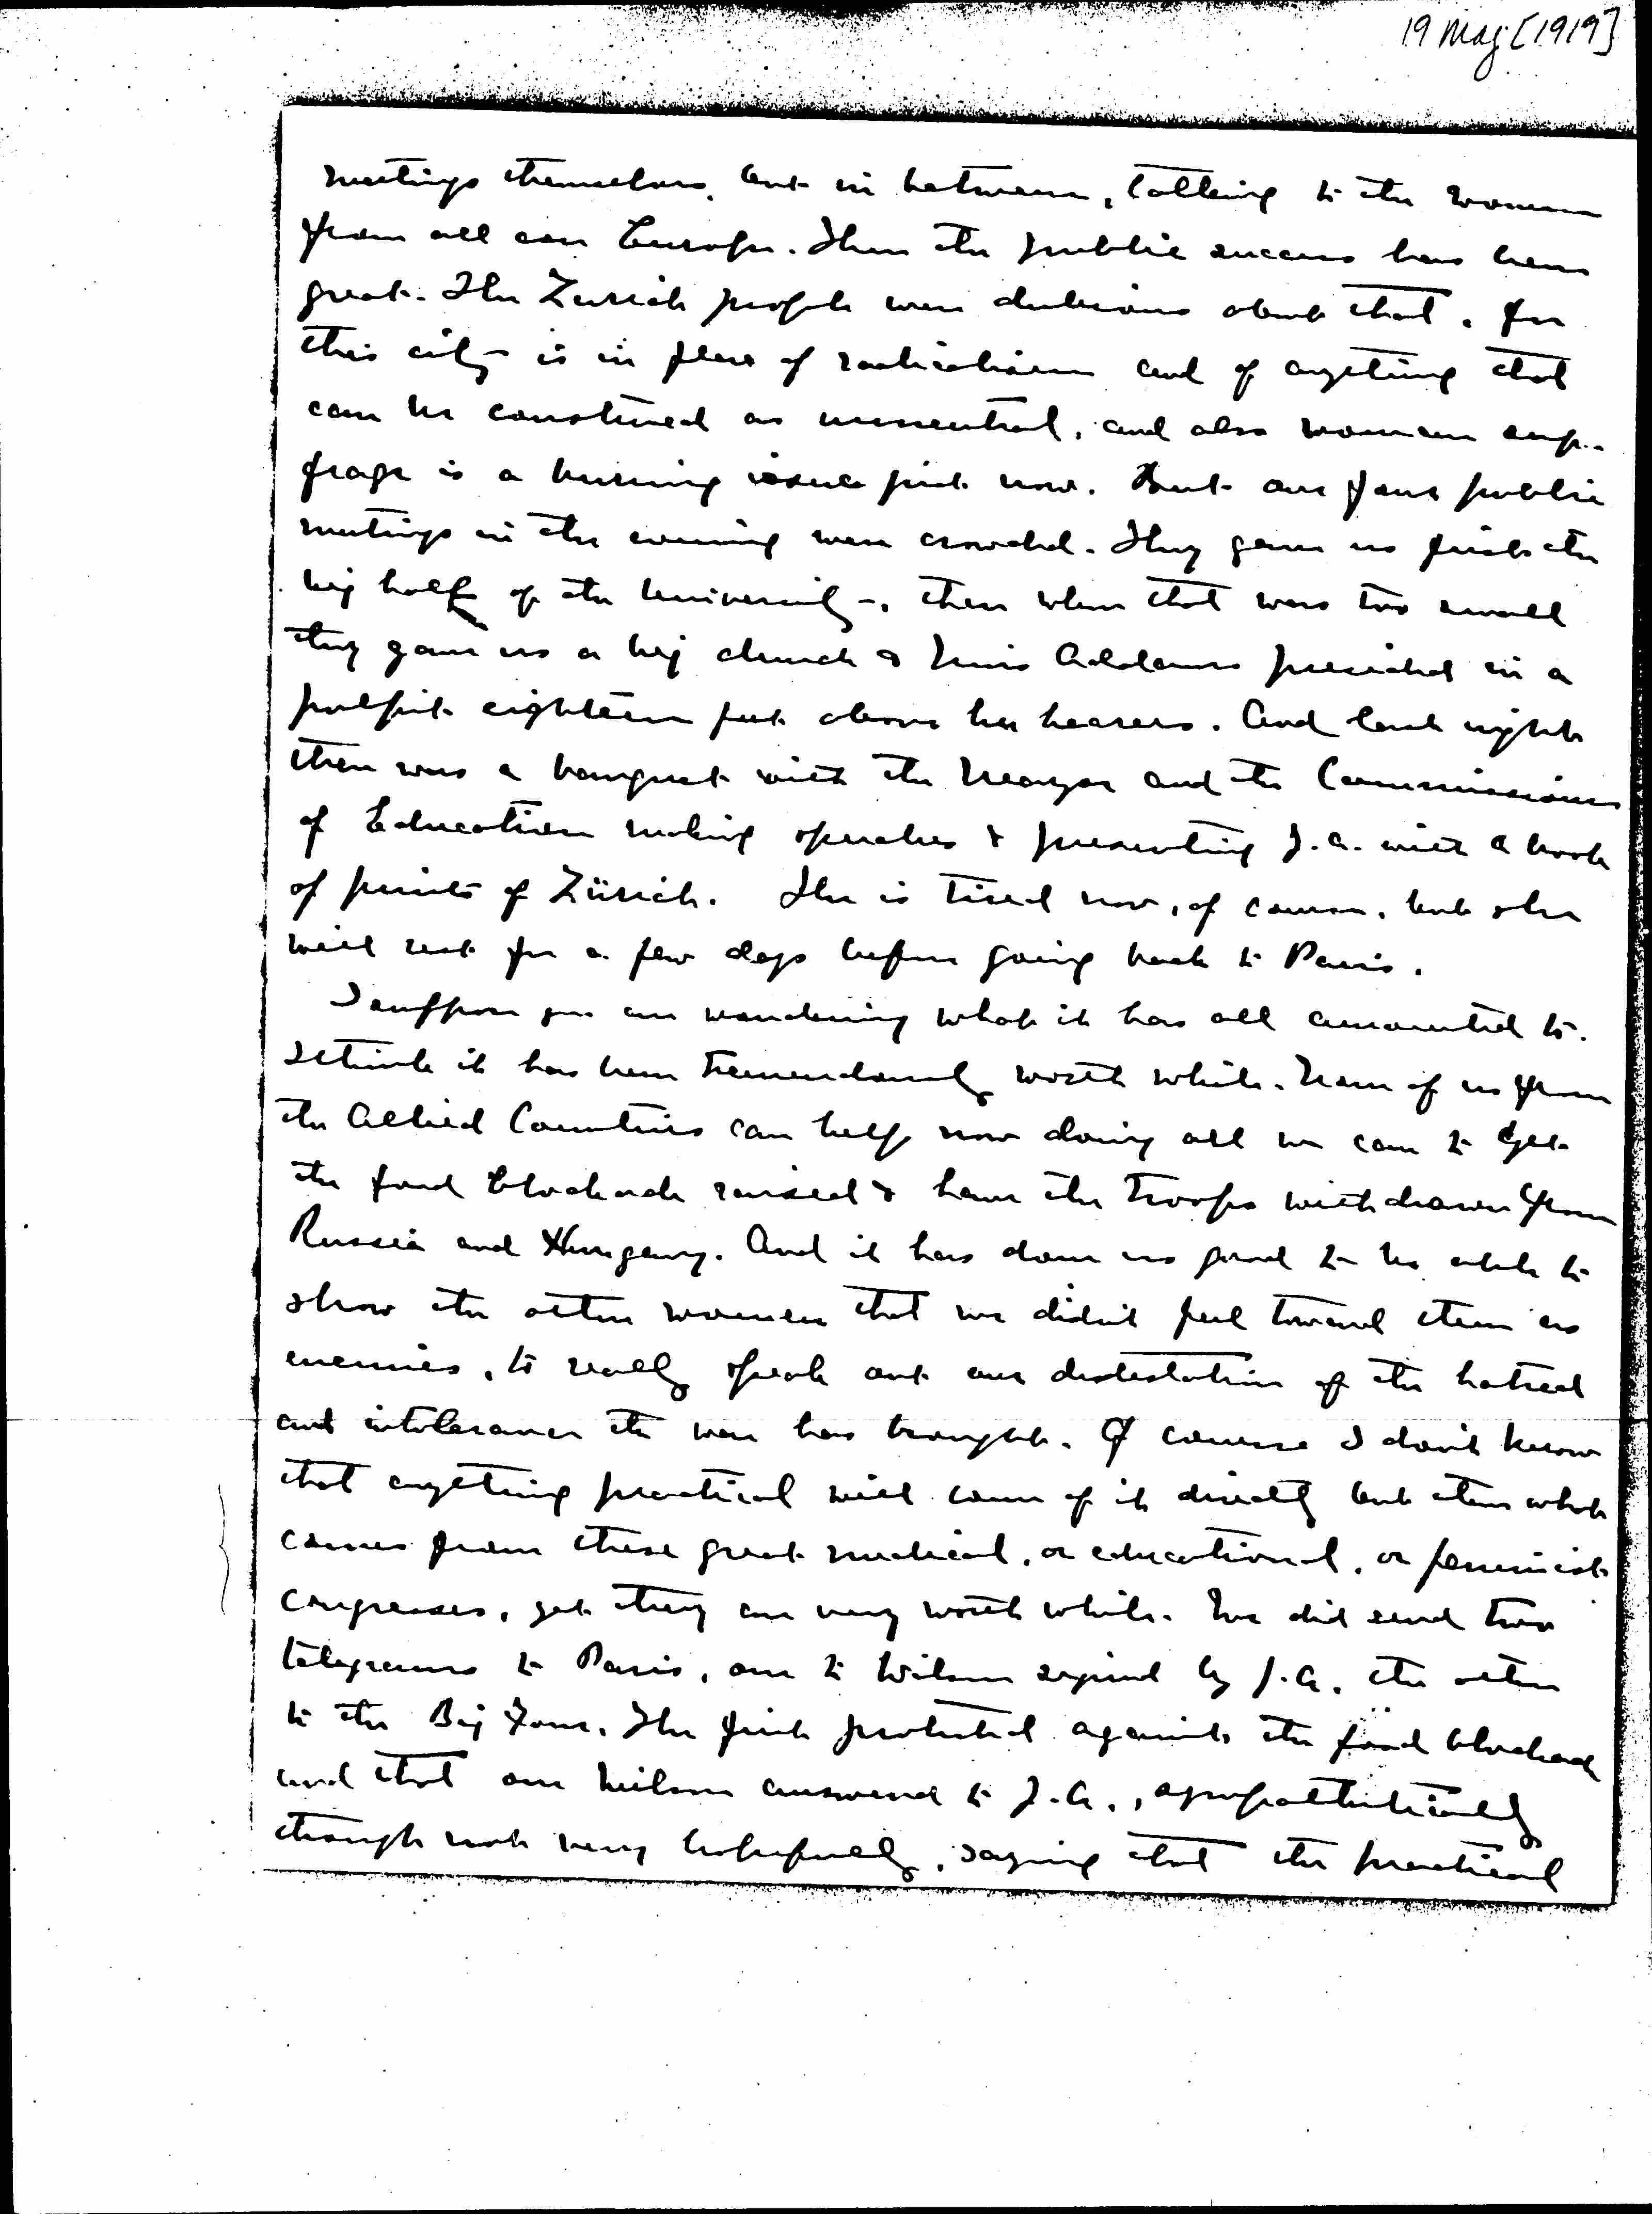 19 May [1919]
meetings themselves, but in between, talking to the women
from all over Europe. Then the public success has been
great. The Zurich people were dubious about that, for
this city is in fear of radicalism and of anything that
can be construed as unneutral, and also woman suf-
frage is a burning issue just now. But our four public
meetings in the evening were crowded. They gave us first the
big hall of the University, then when that was too small
they gave us a big church & Miss Addams presided in a
pulpit eighteen feet above her hearers. And last night
there was a banquet with the Mayor and the Commissioner
of Education making speeches & presenting J.A. with a book
of prints of Zürich. She is tired now, of course, but she
will rest for a few days before going back to Paris.
I suppose you are wondering what it has all amounted to.
I think it has been tremendously worth while. None of us from
the Allied Countries can help now doing all we can to get
the food blockade raised & have the troops withdrawn from
Russia and Hungary. And it has done us good to be able to
show the other women that we didn't feel toward them as
enemies, to really speak out our destestation of the hatred
and intolerance the war has brought. Of course I don't know
that anything practical will come of it directly but then what
comes from these great medical, or educational, or feminist
congresses, yet they are very worth while. We did send two
telegrams to Paris, one to Wilson signed by J.A. the other
to the Big Four. The first protested against the food blockade
and that one Wilson answered to J.A., sympathetically
though not very hopefully, saying that the practical